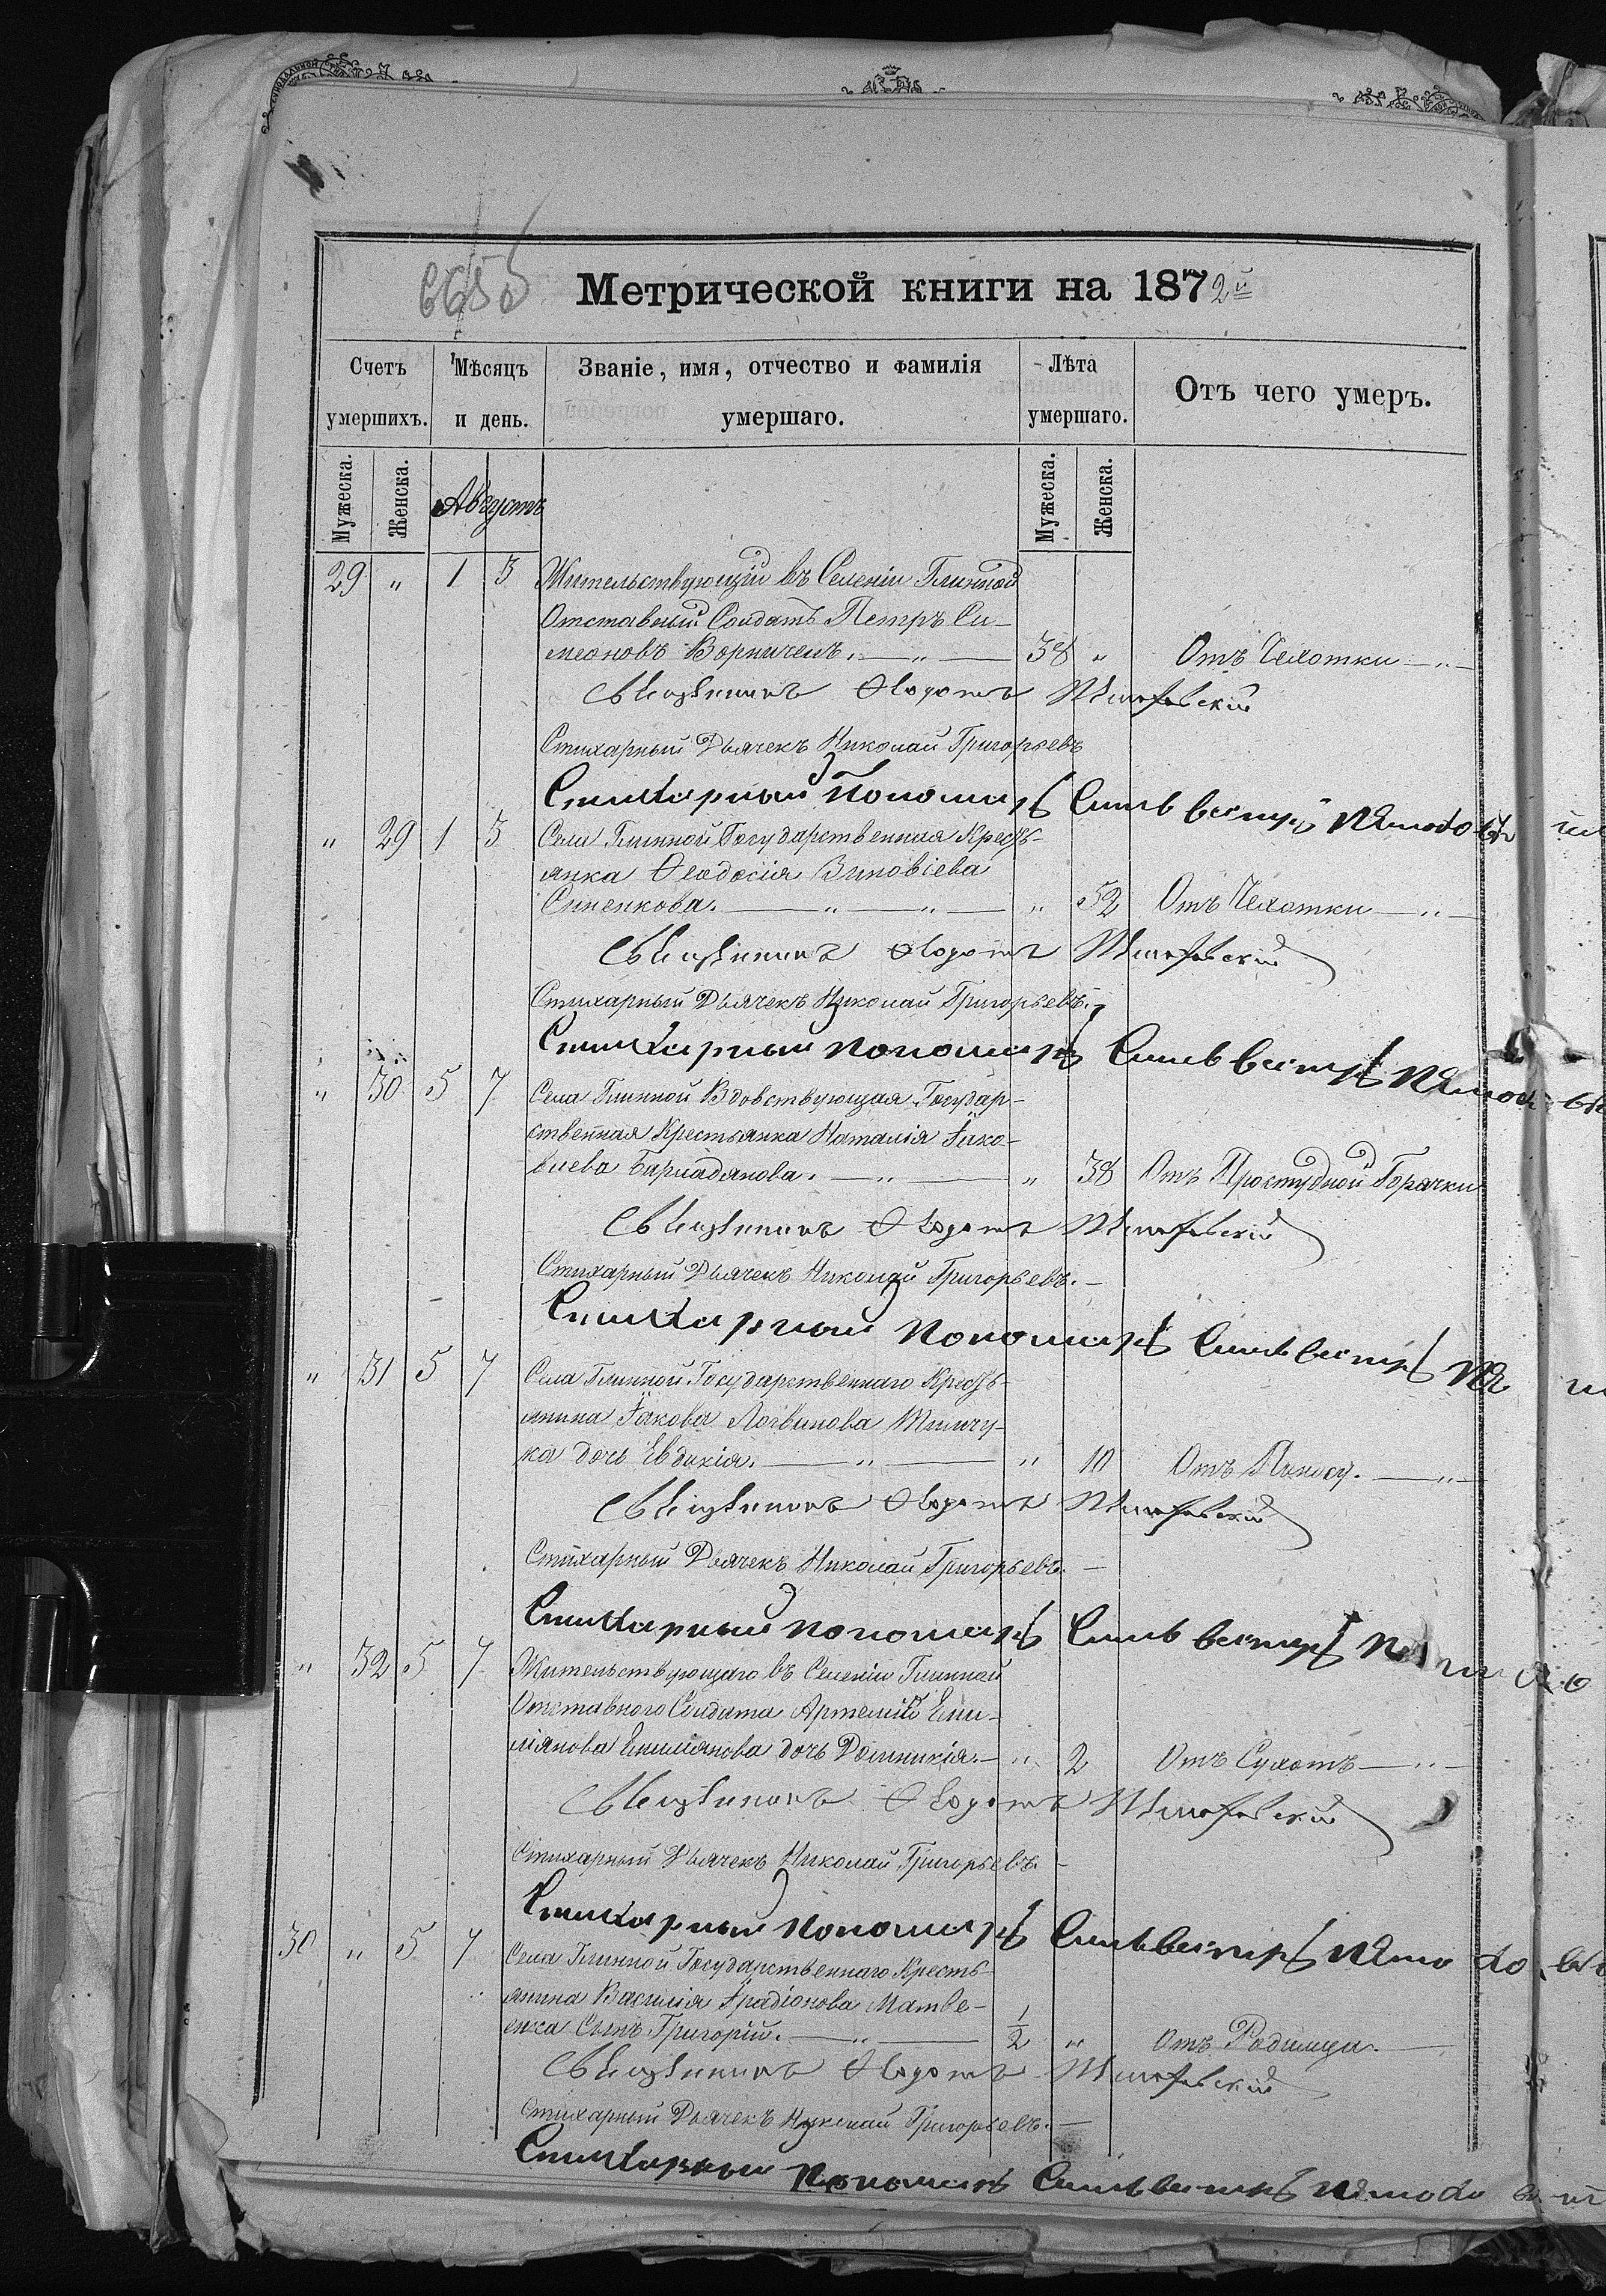 6655
Метрической книги на 1872й
Счетъ умершихъ. Мѣсяцъ и день. Званіе, имя, отчество и фамилія умершаго. Лѣта умершаго. Отъ чего умеръ.
Мужеска. Женска. Августъ Мужеска. Женска.
29 „ 1 3 Жительствующій въ Селеніи Глинной
Отставный Солдатъ Петръ Си-
меоновъ Ворничелъ. — „ — 38 „ Отъ Чехотки — „ —
Священникъ Ѳеодотъ
Стихарный Дьячекъ Николай Григорьевъ
Стихарный Пономарь Сильвестръ
„ 29 1 3 Села Глинной Государственная Кресть-
янка Ѳеодосія Зиновіева
Сипенкова. — „ — „ — „ 52 Отъ Чехотки — „ —
Священникъ Ѳеодотъ
Стихарный Дьячекъ Николай Григорьевъ.
Стихарный пономарь Сильвестръ
„ 30 5 7 Села Глинной Вдовствующая Государ-
ственная Крестьянка Наталія Іако-
влева — „ — „ 38 Отъ Простудной Горячки
Священникъ Ѳеодотъ
Стихарный Дьячекъ Николай Григорьевъ. —
Стихарный пономарь Сильвестръ
„ 31 5 7 Села Глинной Государственнаго Кресть-
янина Іакова Логвинова
дочь Евдокія. — „ — „ 10 Отъ Паносу. — „ —
Священникъ Ѳеодотъ
Стихарный Дьячекъ Николай Григорьевъ. —
Стихарный пономарь Сильвестръ
„ 32 5 7 Жительствующаго въ Селеніи Глинной
Отставного Солдата Артемія Еми-
ліянова Емиліянова дочь Домникія. — „ 2 Отъ Сухотъ — „ —
Священникъ Ѳеодотъ
Стихарный Дьячекъ Николай Григорьевъ. —
Стихарный пономарь Сильвестръ
30 „ 5 7 Села Глинной Государственнаго Кресть-
янина Василія Ѵрадіонова Матве-
енка Сынъ Григорій. — „ — 1/2 „ Отъ Родимца. —
Священникъ Ѳеодотъ
Стихарный Дьячекъ Николай Григорьевъ. —
Стихарный Пономарь Сильвестръ